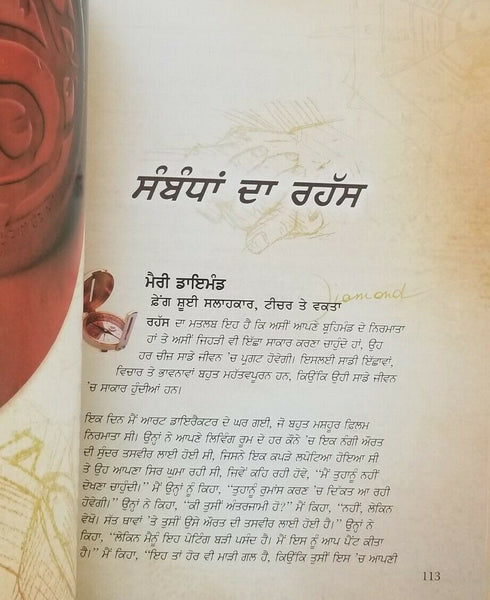 ਸੰਬੰਧਾਂ ਦਾ ਰਹੱਸ
ਮੈਰੀ ਡਾਇਮੰਡ
ਫ਼ੇਂਗ ਸ਼ੂਈ ਸਲਾਹਕਾਰ, ਟੀਚਰ ਤੇ ਵਕਤਾ
Diamond
ਰਹੱਸ ਦਾ ਮਤਲਬ ਇਹ ਹੈ ਕਿ ਅਸੀਂ ਆਪਣੇ ਬ੍ਰਹਿਮੰਡ ਦੇ ਨਿਰਮਾਤਾ
ਹਾਂ ਤੇ ਅਸੀਂ ਜਿਹੜੀ ਵੀ ਇੱਛਾ ਸਾਕਾਰ ਕਰਣਾ ਚਾਹੁੰਦੇ ਹਾਂ, ਉਹ
ਹਰ ਚੀਜ਼ ਸਾਡੇ ਜੀਵਨ 'ਚ ਪ੍ਰਗਟ ਹੋਵੇਗੀ। ਇਸਲਈ ਸਾਡੀ ਇੱਛਾਵਾਂ,
ਵਿਚਾਰ ਤੇ ਭਾਵਨਾਵਾਂ ਬਹੁਤ ਮਹੱਤਵਪੂਰਨ ਹਨ, ਕਿਉਂਕਿ ਉਹੀ ਸਾਡੇ ਜੀਵਨ
'ਚ ਸਾਕਾਰ ਹੁੰਦੀਆਂ ਹਨ।
ਇਕ ਦਿਨ ਮੈਂ ਆਰਟ ਡਾਇਰੈਕਟਰ ਦੇ ਘਰ ਗਈ, ਜੋ ਬਹੁਤ ਮਸ਼ਹੂਰ ਫ਼ਿਲਮ
ਨਿਰਮਾਤਾ ਸੀ। ਉਨ੍ਹਾਂ ਨੇ ਆਪਣੇ ਲਿਵਿੰਗ ਰੂਮ ਦੇ ਹਰ ਕੋਨੇ 'ਚ ਇਕ ਨੰਗੀ ਔਰਤ
ਦੀ ਸੁੰਦਰ ਤਸਵੀਰ ਲਾਈ ਹੋਈ ਸੀ, ਜਿਸਨੇ ਇਕ ਕਪੜੇ ਲਪੇਟਿਆ ਹੋਇਆ ਸੀ
ਤੇ ਉਹ ਆਪਣਾ ਸਿਰ ਘੁਮਾ ਰਹੀ ਸੀ, ਜਿਵੇਂ ਕਹਿ ਰਹੀ ਹੋਵੇ, “ਮੈਂ ਤੁਹਾਨੂੰ ਨਹੀਂ
ਦੇਖਣਾ ਚਾਹੁੰਦੀ।” ਮੈਂ ਉਨ੍ਹਾਂ ਨੂੰ ਕਿਹਾ, “ਤੁਹਾਨੂੰ ਰੁਮਾਂਸ ਕਰਣ 'ਚ ਦਿੱਕਤ ਆ ਰਹੀ
ਹੋਵੇਗੀ।” ਉਨ੍ਹਾਂ ਨੇ ਕਿਹਾ, “ਕੀ ਤੁਸੀਂ ਅੰਤਰਜਾਮੀ ਹੋ?” ਮੈਂ ਕਿਹਾ, “ਨਹੀਂ, ਲੇਕਿਨ
ਵੇਖੋ। ਸੱਤ ਥਾਵਾਂ 'ਤੇ ਤੁਸੀਂ ਉਸੇ ਔਰਤ ਦੀ ਤਸਵੀਰ ਲਾਈ ਹੋਈ ਹੈ।” ਉਨ੍ਹਾਂ ਨੇ
ਕਿਹਾ, “ਲੇਕਿਨ ਮੈਨੂੰ ਇਹ ਪੇਂਟਿੰਗ ਬੜੀ ਪਸੰਦ ਹੈ। ਮੈਂ ਇਸ ਨੂੰ ਆਪ ਪੇਂਟ ਕੀਤਾ
ਹੈ।” ਮੈਂ ਕਿਹਾ, “ਇਹ ਤਾਂ ਹੋਰ ਵੀ ਮਾੜੀ ਗਲ ਹੈ, ਕਿਉਂਕਿ ਤੁਸੀਂ ਇਸ 'ਚ ਆਪਣੀ
113